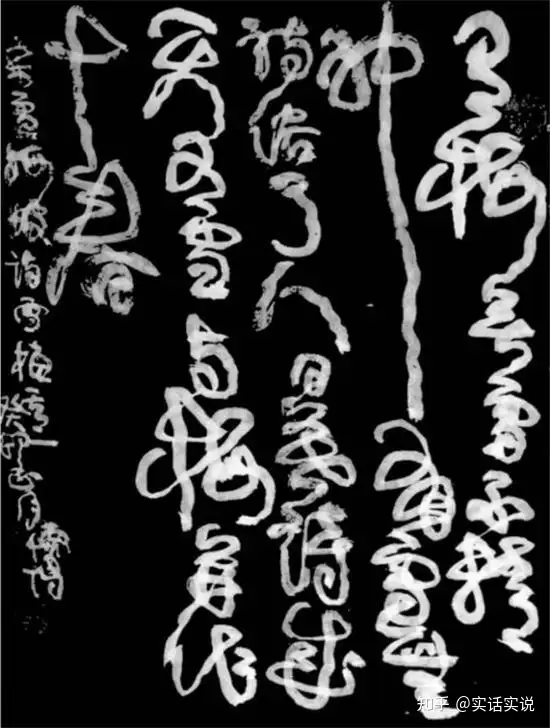 有梅无雪不精
神有雪无
诗俗了人日暮诗成
天又雪与梅并作
十分春
宋卢梅坡诗雪梅
知乎 @实话实说